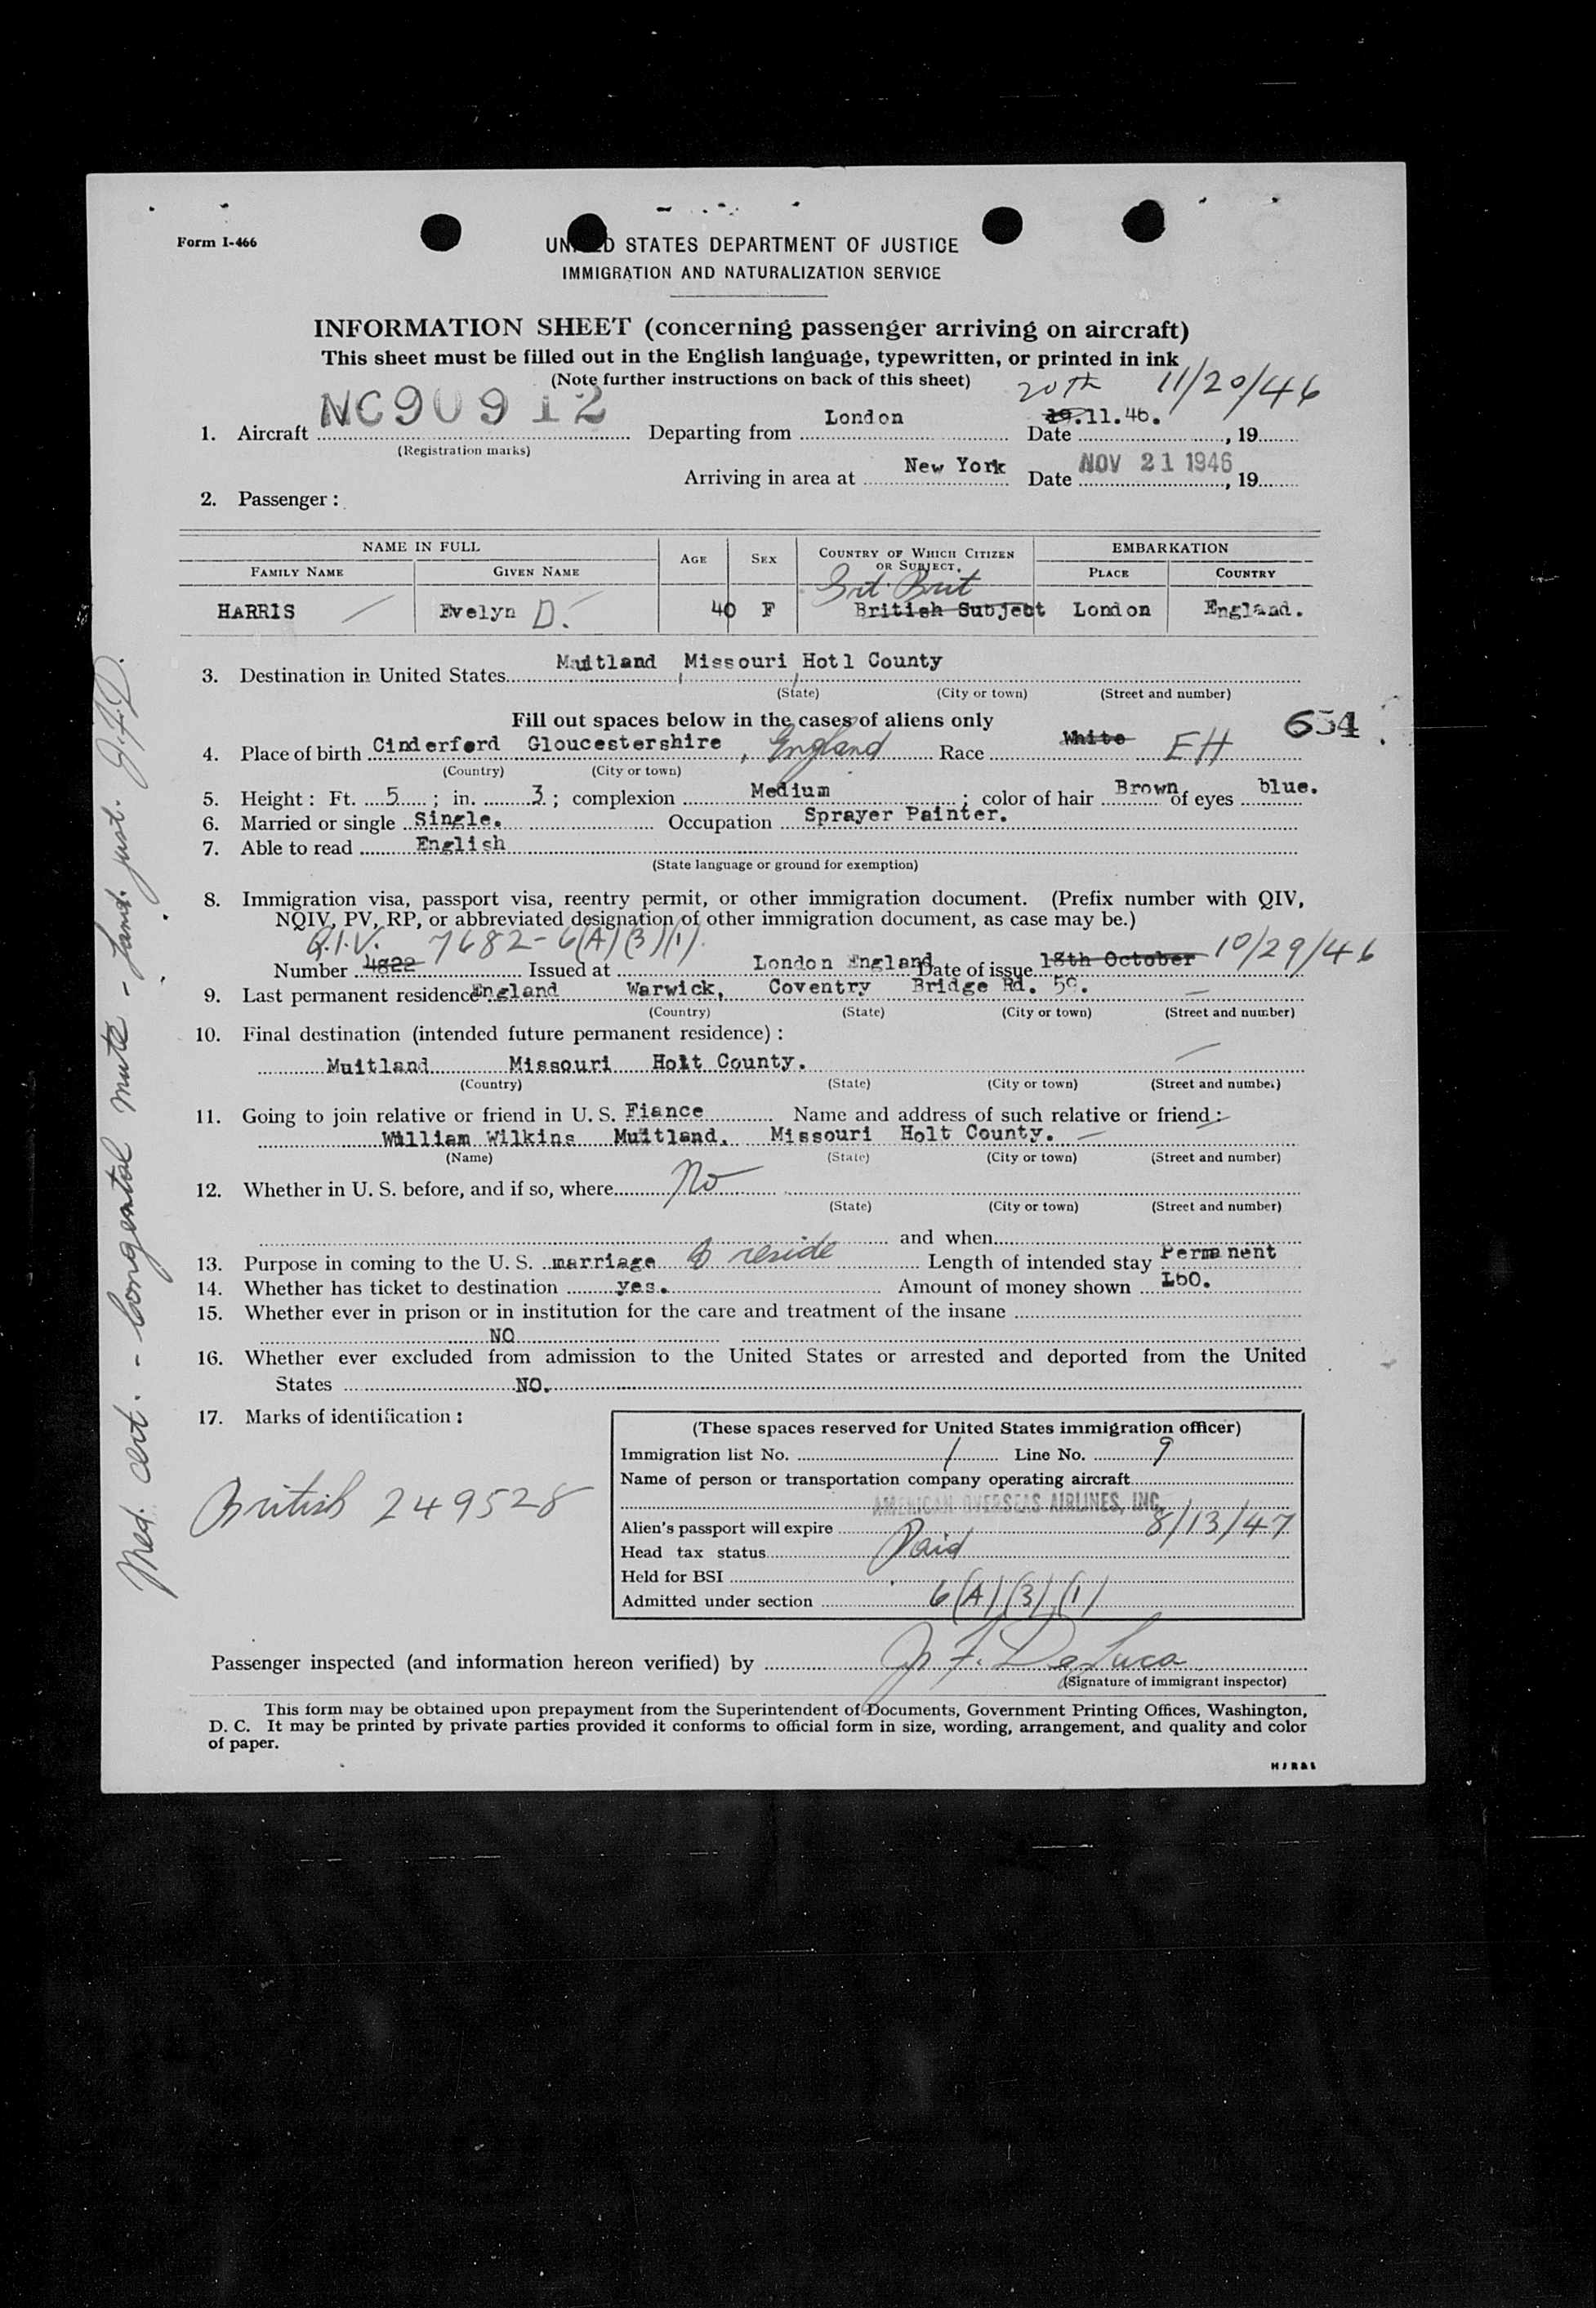 Form I-466
UNITED STATES DEPARTMENT OF JUSTICE
IMMIGRATION AND NATURALIZATION SERVICE
INFORMATION SHEET (concerning passenger arriving on aircraft)
This sheet must be filled out in the English language, typewritten, or printed in ink
(Note further instructions on back of this sheet)
20th 11/20/46
1. Aircraft NC90912 Departing from London Date 19.11.46. , 19
(Registration marks)
Arriving in area at New York Date NOV 21 1946 , 19
2. Passenger :
NAME IN FULL AGE SEX COUNTRY OF WHICH CITIZEN OR SUBJECT. EMBARKATION
FAMILY NAME GIVEN NAME PLACE COUNTRY
Grt. Brit
HARRIS Evelyn D. 40 F British Subject London England.
3. Destination in United States Maitland Missouri Hotl County
(State) (City or town) (Street and number)
Fill out spaces below in the cases of aliens only 654
4. Place of birth Cinderford Gloucestershire , England Race White EH
(Country) (City or town)
5. Height : Ft. 5 ; in. 3 ; complexion Medium ; color of hair Brown of eyes blue.
6. Married or single Single. Occupation Sprayer Painter.
7. Able to read English
(State language or ground for exemption)
8. Immigration visa, passport visa, reentry permit, or other immigration document. (Prefix number with QIV,
NQIV, PV, RP, or abbreviated designation of other immigration document, as case may be.)
Q.I.V. 7682-6(A)(3)(1).
Number 4822 Issued at London England Date of issue 18th October 10/29/46
9. Last permanent residence England Warwick, Coventry Bridge Rd. 59.
(Country) (State) (City or town) (Street and number)
10. Final destination (intended future permanent residence) :
Muitland Missouri Holt County.
(Country) (State) (City or town) (Street and number)
11. Going to join relative or friend in U. S. Fiance Name and address of such relative or friend :
William Wilkins Muitland, Missouri Holt County.
(Name) (State) (City or town) (Street and number)
12. Whether in U. S. before, and if so, where No
(State) (City or town) (Street and number)
and when
13. Purpose in coming to the U. S. marriage & reside Length of intended stay Permanent
14. Whether has ticket to destination yes. Amount of money shown L60.
15. Whether ever in prison or in institution for the care and treatment of the insane
NO
16. Whether ever excluded from admission to the United States or arrested and deported from the United
States NO.
17. Marks of identification :
British 249528
(These spaces reserved for United States immigration officer)
Immigration list No. 1 Line No. 9
Name of person or transportation company operating aircraft
AMERICAN OVERSEAS AIRLINES, INC.
Alien's passport will expire 8/13/47
Head tax status Paid
Held for BSI
Admitted under section 6(A)(3)(1)
Passenger inspected (and information hereon verified) by J. F. DeLuca
(Signature of immigrant inspector)
This form may be obtained upon prepayment from the Superintendent of Documents, Government Printing Offices, Washington,
D. C. It may be printed by private parties provided it conforms to official form in size, wording, arrangement, and quality and color
of paper.
Med. cert. - Congenital mute - Land. just. J.F.D.